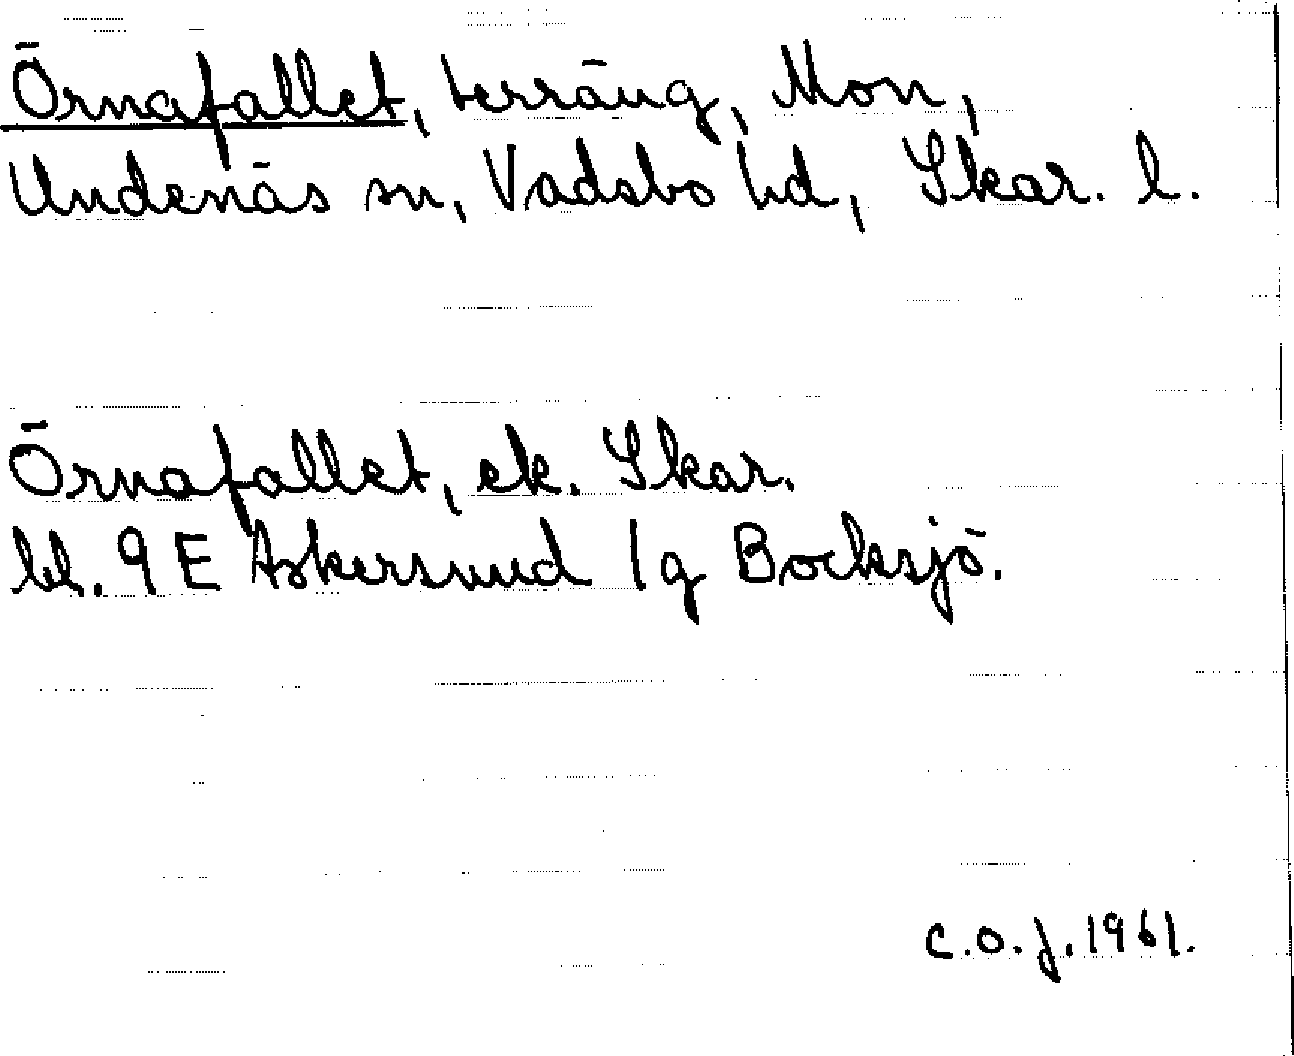 Örnafallet, terräng, Mon,
Undenäs sn, Vadsbo hd, Skar. l.
Örnafallet, ek. Skar.
bl. 9 E Askersund 1g Bocksjö.
C.O.J. 1961.